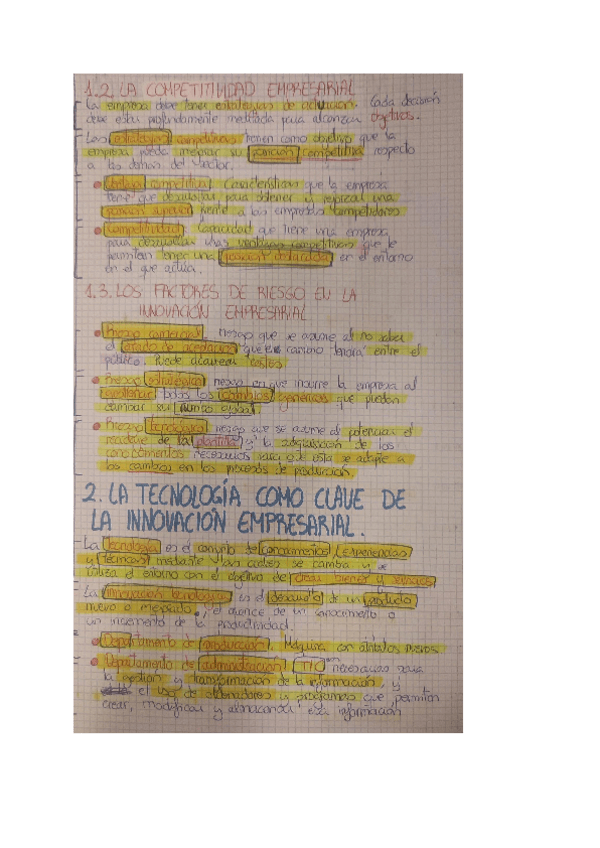 1.2. LA COMPETITIVIDAD EMPRESARIAL
La empresa debe tener estrategias de actuación. Cada decisión
debe estar profundamente meditada para alcanzar objetivos.
Las estrategias competitivas tienen como objetivo que la
empresa pueda mejorar su posición competitiva respecto
a las demás del sector.
Ventaja competitiva: Características que la empresa
tiene que desarrollar para obtener el una
posición superior frente a las empresas competidoras
Competitividad: Capacidad que tiene una empresa
para desarrollar unas ventajas competitivas que le
permitan tener una posición destacada en el entorno
en el que actúa.
1.3. LOS FACTORES DE RIESGO EN LA
INNOVACIÓN EMPRESARIAL
Riesgo comercial: riesgo que se asume al no saber
el grado de aceptación que el cambio tendrá entre el
público. Puede acarrear costos
Riesgo estratégico: riesgo en que incurre la empresa al
todos los cambios que puedan
cambiar su rumbo global.
Riesgo tecnológico: riesgo que se asume al potenciar el
reciclaje de la plantilla y la adquisición de los
conocimientos necesarios para que esta se adapte a
los cambios en los procesos de producción.
2. LA TECNOLOGÍA COMO CLAVE DE
LA INNOVACIÓN EMPRESARIAL.
La tecnología es el conjunto de conocimientos, experiencias
y técnicas mediante las cuales se cambia y se
utiliza el entorno con el objetivo de crear bienes y servicios
La innovación tecnológica es el desarrollo de un producto
nuevo o mejorado, el avance de un conocimiento o
un incremento de la productividad.
Departamento de producción: Máquina con
Departamento de administración: TIC necesarias para
la gestión y transformación de la información, y
el uso de ordenadores y programas que permiten
crear, modificar y almacenar esa información